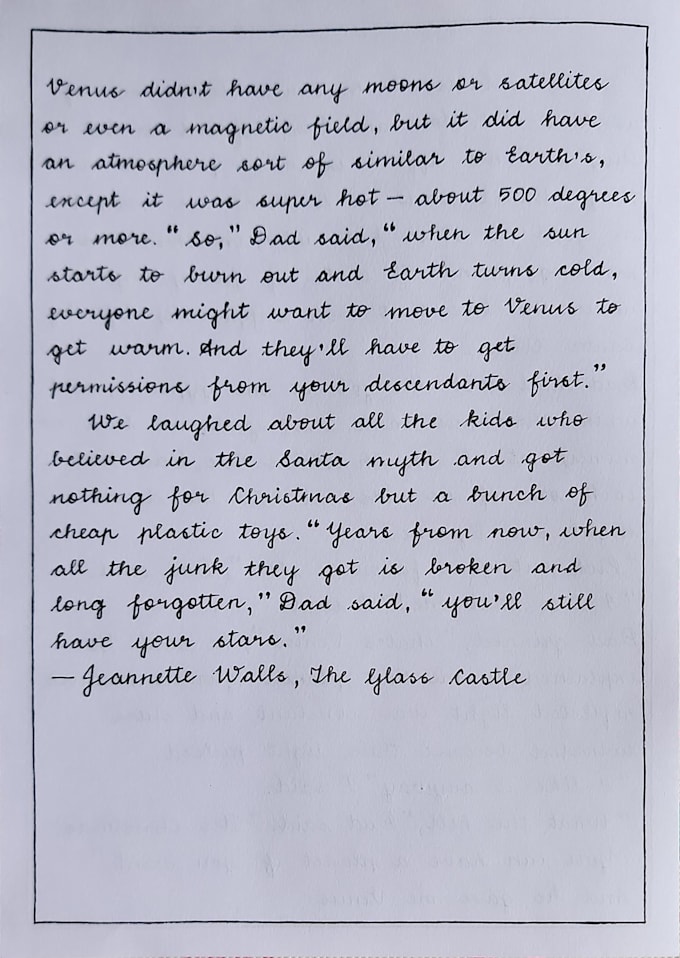 Venus didn't have any moons or satellites
or even a magnetic field, but it did have
an atmosphere sort of similar to Earth's,
except it was super hot — about 500 degrees
or more. "So," Dad said, "when the sun
starts to burn out and Earth turns cold,
everyone might want to move to Venus to
get warm. And they'll have to get
permissions from your descendants first."
We laughed about all the kids who
believed in the Santa myth and got
nothing for Christmas but a bunch of
cheap plastic toys. "Years from now, when
all the junk they got is broken and
long forgotten," Dad said, "you'll still
have your stars."
— Jeannette Walls, The Glass Castle